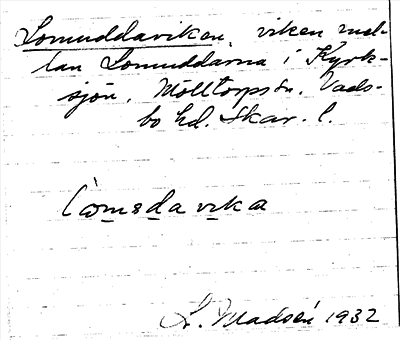 Lomuddaviken, viken mel-
lan Lomuddarna i Kyrk-
sjön, Mölltorps sn. Vads-
bo hd. Skar. l.
lomsdavika
L. Madsén 1932